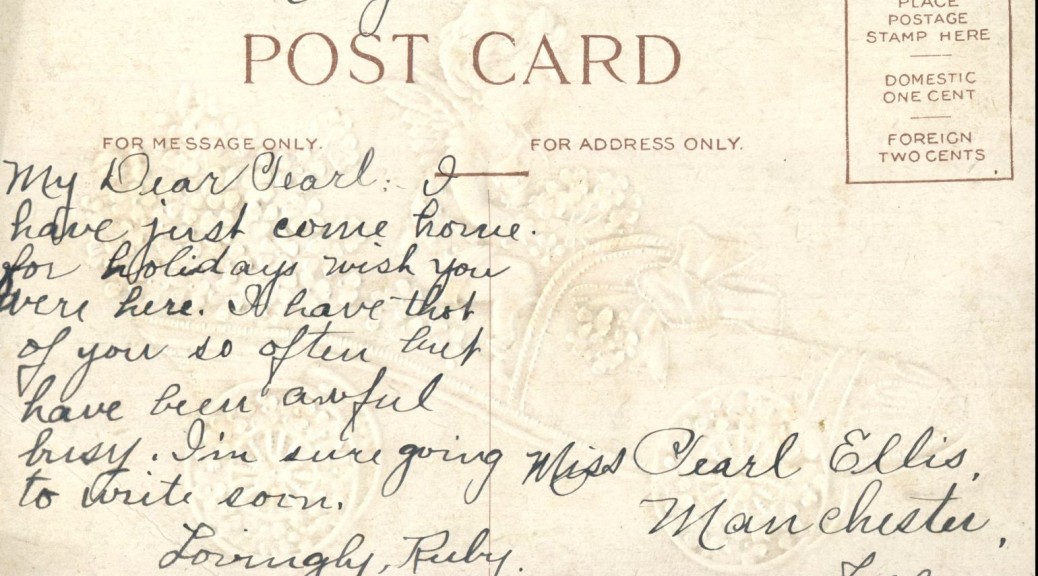 PLACE
POSTAGE
STAMP HERE
DOMESTIC
ONE CENT
FOREIGN
TWO CENTS
POST CARD
FOR MESSAGE ONLY.
FOR ADDRESS ONLY.
My Dear Pearl: I
have just come home.
for holidays wish you
were here. I have thot
of you so often but
have been awful
busy. I'm sure going
to write soon.
Lovingly, Ruby.
Miss Pearl Ellis,
Manchester,